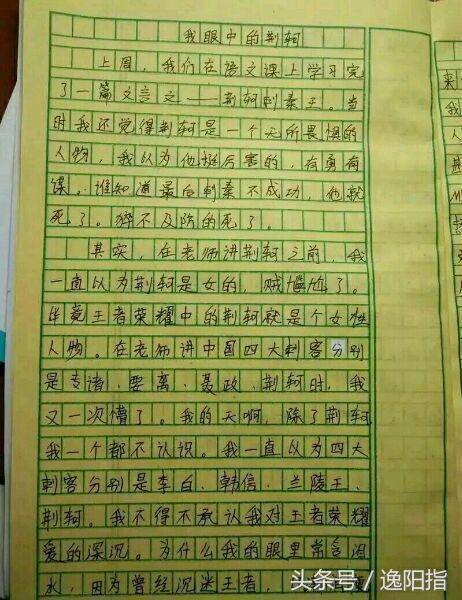 我眼中的荆轲
上周，我们在语文课上学习完
了一篇文言文——荆轲刺秦王。当
时我还觉得荆轲是一个无所畏惧的
人物，我以为他挺厉害的，有勇有
谋。谁知道最后刺秦不成功，他就
死了。猝不及防的死了。
其实，在老师讲荆轲之前，我
一直以为荆轲是女的，贼尴尬了。
毕竟王者荣耀中的荆轲就是个女性
人物。在老师讲中国四大刺客分别
是专诸、要离、聂政、荆轲时，我
又一次懵了。我的天啊，除了荆轲，
我一个都不认识。我一直以为四大
刺客分别是李白、韩信、兰陵王、
荆轲。我不得不承认我对王者荣耀
爱的深沉。为什么我的眼里常含泪
水，因为曾经沉迷王者，
来
我
人
头条号／逸阳指